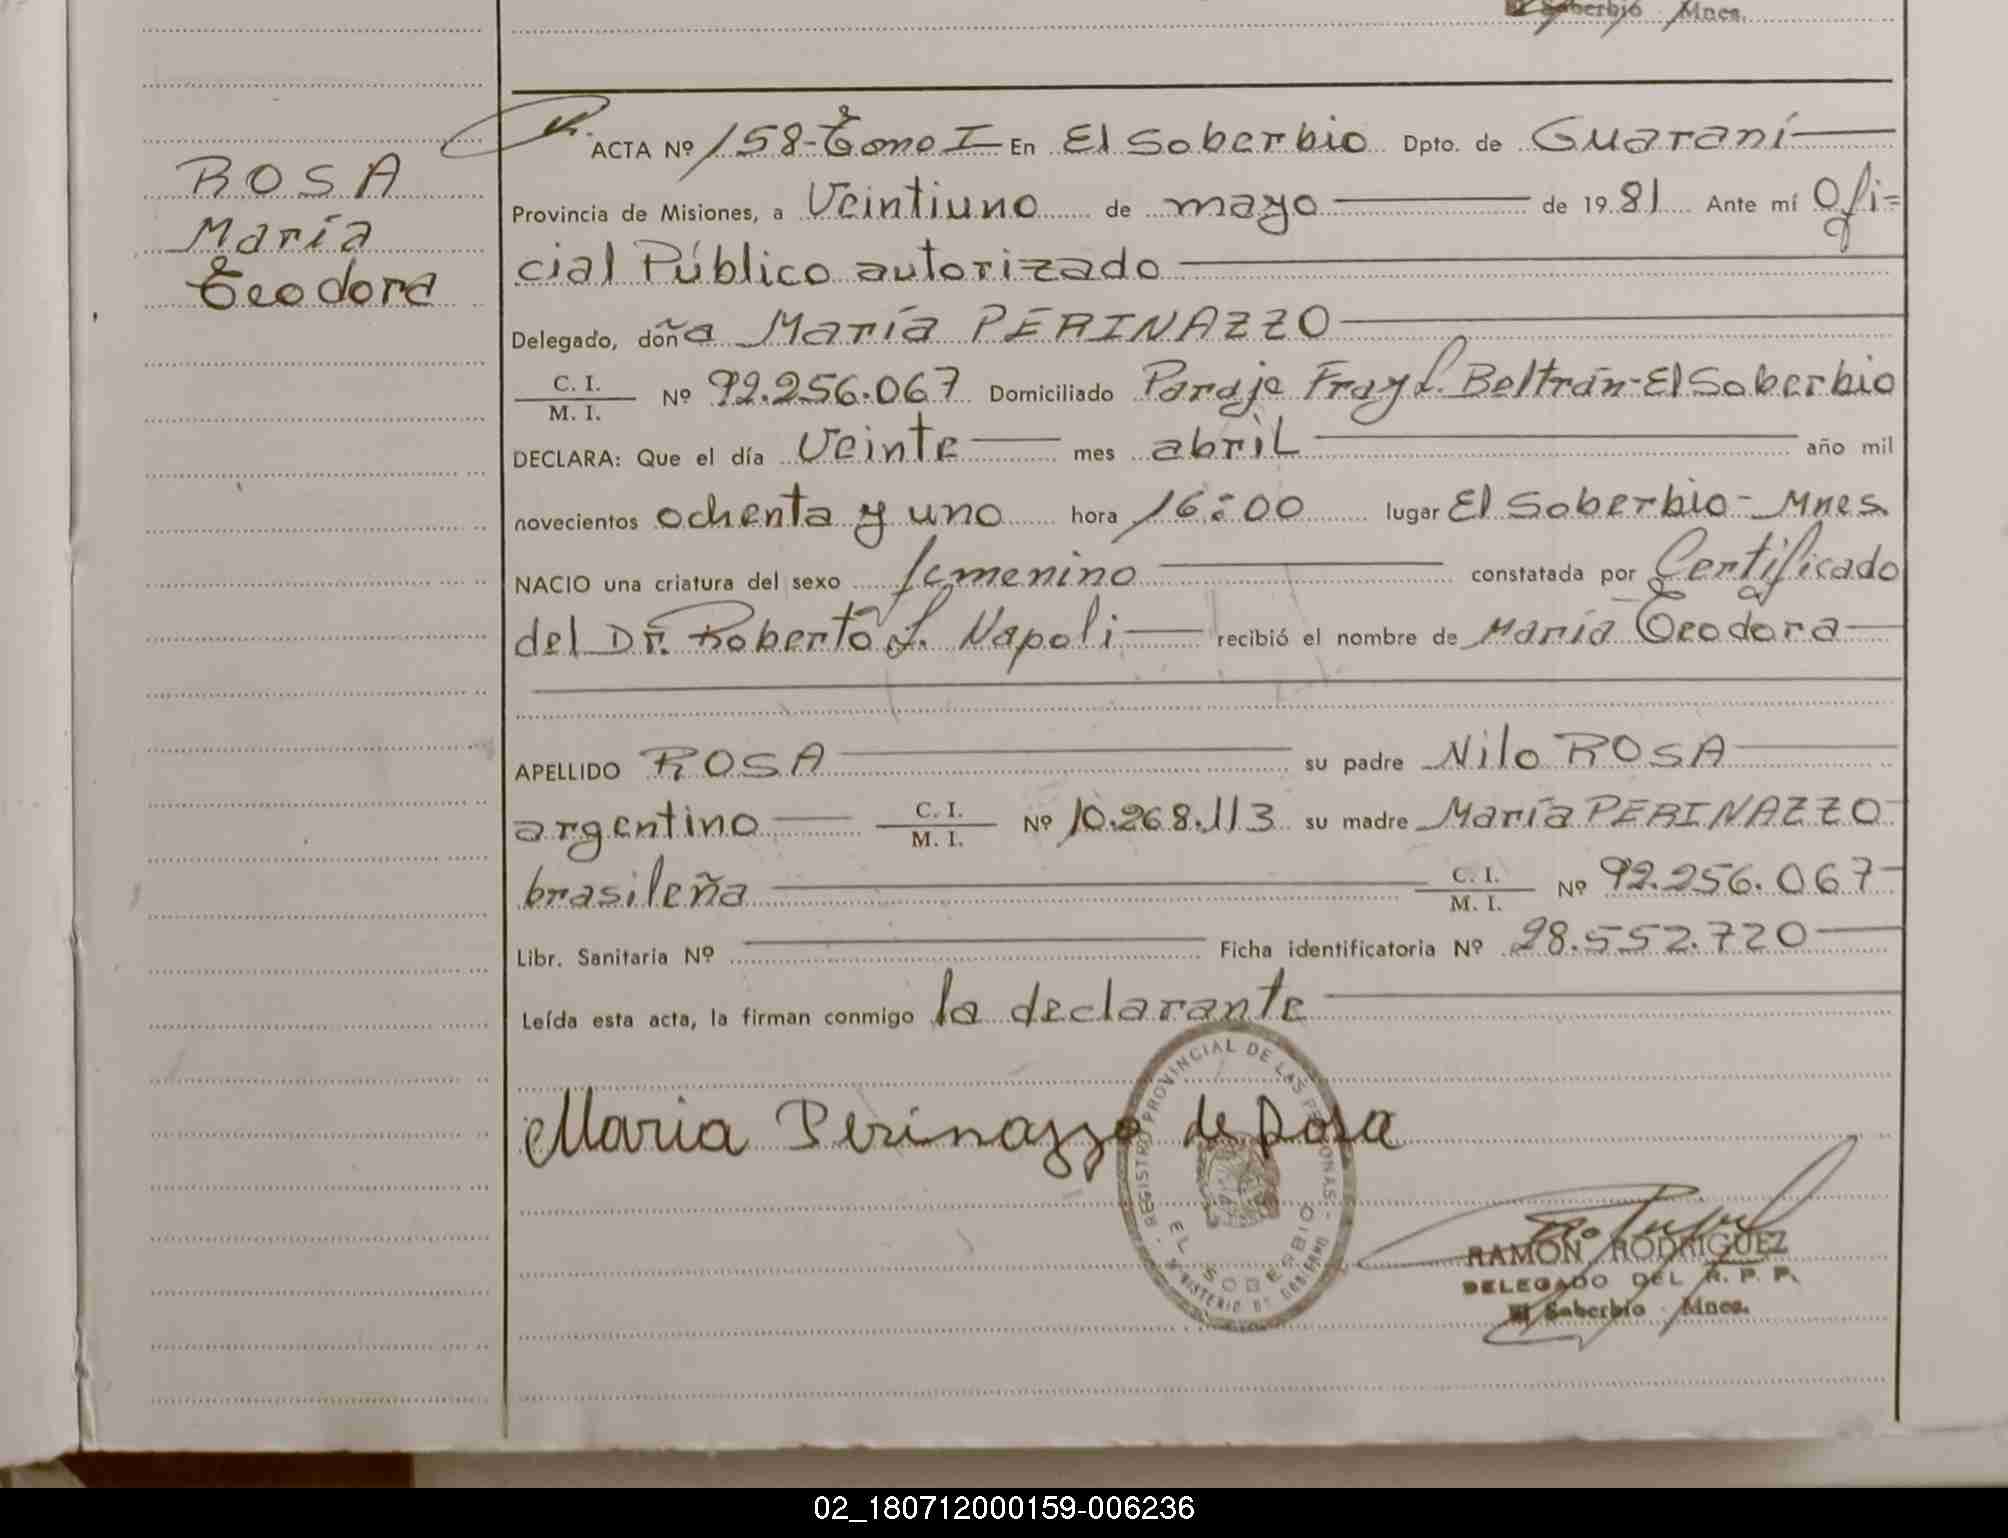 El Soberbio Mnes.
ROSA
María
Teodora
ACTA Nº 158-Tomo I En El Soberbio Dpto. de Guaraní
Provincia de Misiones, a Veintiuno de mayo de 1981 Ante mí Ofi=
cial Público autorizado
Delegado, doña María PERINAZZO
C. I.
M. I. Nº 92.256.067 Domiciliado Paraje Fray L. Beltrán-El Soberbio
DECLARA: Que el día Veinte mes abril año mil
novecientos ochenta y uno hora 16:00 lugar El Soberbio-Mnes.
NACIO una criatura del sexo femenino constatada por Certificado
del Dr. Roberto L. Napoli recibió el nombre de María Teodora
APELLIDO ROSA su padre Nilo ROSA
argentino C. I. M. I. Nº 10.268.113 su madre María PERINAZZO
brasileña C. I. M. I. Nº 92.256.067
Libr. Sanitaria Nº Ficha identificatoria Nº 28.552.720
Leída esta acta, la firman conmigo la declarante
Maria Perinazzo de Rosa
REGISTRO PROVINCIAL DE LAS PERSONAS
EL SOBERBIO
MINISTERIO DE GOBIERNO
RAMON RODRIGUEZ
DELEGADO DEL R. P. P.
El Soberbio Mnes.
02_180712000159-006236